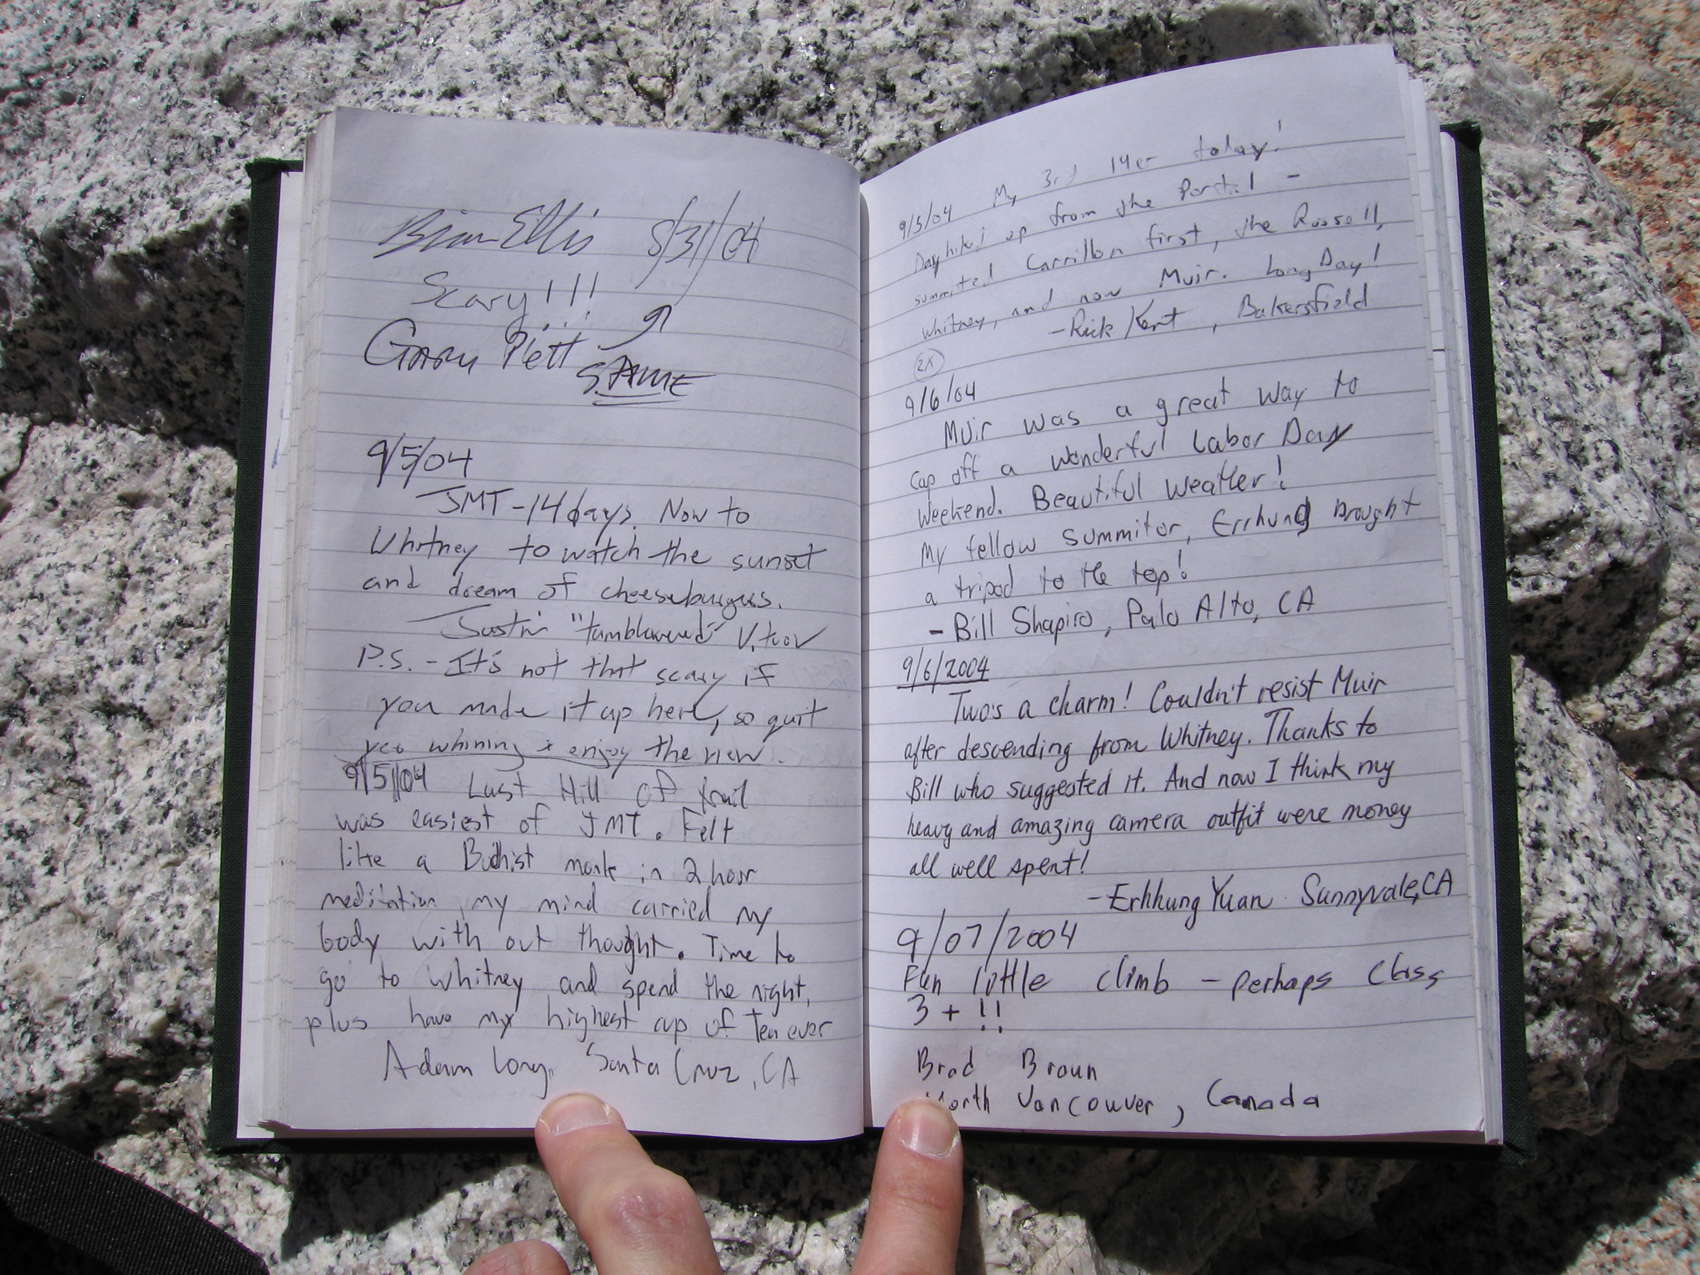 Brian Ellis 8/31/04
Scary!!!
Gary Plett SAME
9/5/04
JMT-14 days. Now to
Whitney to watch the sunset
and dream of cheeseburgers.
Justin
P.S. - It's not that scary if
you made it up here, so quit
yer whining & enjoy the view.
9/5/04 Last Hill of trail
was easiest of JMT. Felt
like a Budhist monk in 2 hour
meditation my mind carried my
body with out thought. Time to
go to Whitney and spend the night,
plus have my highest cup of Tea ever
Adam Long, Santa Cruz, CA
9/5/04 My 3rd 14er today!
Dayhiked up from the Portal -
summited Carrillon first, the Russell,
Whitney, and now Muir. Long Day!
-Rick Kent, Bakersfield
2x
9/6/04
Muir was a great way to
cap off a wonderful Labor Day
weekend. Beautiful weather!
My fellow summitor, Errhung brought
a tripod to the top!
- Bill Shapiro, Palo Alto, CA
9/6/2004
Two's a charm! Couldn't resist Muir
after descending from Whitney. Thanks to
Bill who suggested it. And now I think my
heavy and amazing camera outfit were money
all well spent!
-Erhhung Yuan Sunnyvale, CA
9/07/2004
Fun little climb - perhaps Class
3+!!
Brad Broun
North Vancouver, Canada